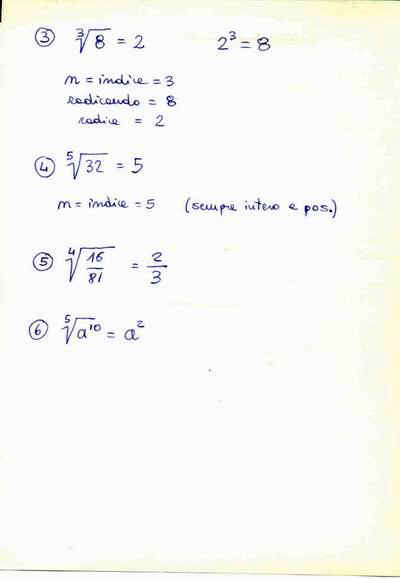 ③ ∛8 = 2 2³ = 8
n = indice = 3
radicando = 8
radice = 2
④ ⁵√32 = 5
n = indice = 5 (sempre intero e pos.)
⑤ ⁴√(16/81) = 2/3
⑥ ⁵√a¹⁰ = a²